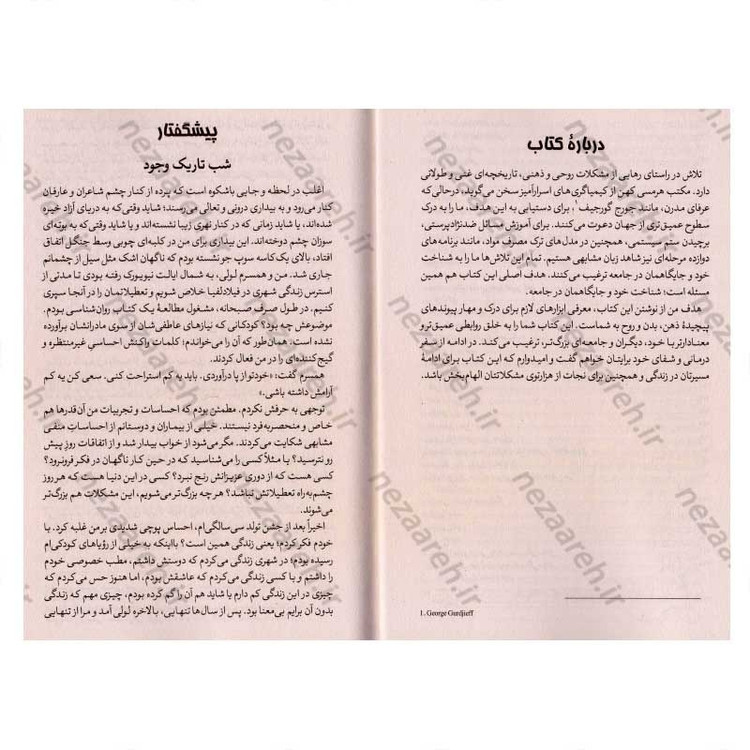 دربارهٔ کتاب
تلاش در راستای رهایی از مشکلات روحی و ذهنی، تاریخچه‌ای غنی و طولانی
دارد. مکتب هرمسی کهن از کیمیاگری‌های اسرارآمیز سخن می‌گوید، درحالی‌که
عرفای مدرن، مانند جورج گورجیف۱، برای دستیابی به این هدف، ما را به درک
سطوح عمیق‌تری از جهان دعوت می‌کنند. برای آموزش مسائل ضدنژادپرستی،
برچیدن ستم سیستمی، همچنین در مدل‌های ترک مصرف مواد، مانند برنامه‌های
دوازده مرحله‌ای نیز شاهد زبان مشابهی هستیم. تمام این تلاش‌ها ما را به شناخت
خود و جایگاهمان در جامعه ترغیب می‌کنند. هدف اصلی این کتاب هم همین
مسئله است؛ شناخت خود و جایگاهمان در جامعه.
هدف من از نوشتن این کتاب، معرفی ابزارهای لازم برای درک و مهار پیوندهای
پیچیدهٔ ذهن، بدن و روح به شماست. این کتاب شما را به خلق روابطی عمیق‌تر و
معنادارتر با خود، دیگران و جامعه‌ای بزرگ‌تر، ترغیب می‌کند. در ادامه از سفر
درمانی و شفای خود برایتان خواهم گفت و امیدوارم که این کتاب برای ادامهٔ
مسیرتان در زندگی و همچنین برای نجات از هزارتوی مشکلاتتان الهام‌بخش باشد.
1. George Gurdjieff
پیشگفتار
شب تاریک وجود
اغلب در لحظه و جایی باشکوه است که پرده از کنار چشم شاعران و عارفان
کنار می‌رود و به بیداری درونی و تعالی می‌رسند؛ شاید وقتی‌که به دریای آزاد خیره
شده‌اند، یا شاید زمانی که در کنار نهری زیبا نشسته‌اند و یا شاید وقتی‌که به بوته‌ای
سوزان چشم دوخته‌اند. این بیداری برای من در کلبه‌ای چوبی وسط جنگل اتفاق
افتاد، بالای یک کاسه سوپ جو نشسته بودم که ناگهان اشک مثل سیل از چشمانم
جاری شد. من و همسرم لولی، به شمال ایالت نیویورک رفته بودی تا مدتی از
استرس زندگی شهری در فیلادلفیا خلاص شویم و تعطیلاتمان را در آنجا سپری
کنیم. در طول صرف صبحانه، مشغول مطالعهٔ یک کتاب روان‌شناسی بودم.
موضوعش چه بود؟ کودکانی که نیازهای عاطفی‌شان از سوی مادرانشان برآورده
نشده بود. همان‌طور که آن را می‌خواندم؛ کلمات واکنش احساسیِ غیرمنتظره و
گیج‌کننده‌ای را در من فعال کردند.
همسرم گفت: «خودتو از پا درآوردی. باید یه کم استراحت کنی. سعی کن یه کم
آرامش داشته باشی.»
توجهی به حرفش نکردم. مطمئن بودم که احساسات و تجربیات من آن‌قدرها هم
خاص و منحصربه‌فرد نیستند. خیلی از بیماران و دوستانم از احساسات منفی
مشابهی شکایت می‌کردند. مگر می‌شود از خواب بیدار شد و از اتفاقات روزِ پیشِ
رو نترسید؟ یا مثلاً کسی را می‌شناسید که در حین کار ناگهان در فکر فرو نرود؟
کسی هست که از دوری عزیزانش رنج نبرد؟ کسی در این دنیا هست که هر روز
چشم‌به‌راه تعطیلاتش نباشد؟ هرچه بزرگ‌تر می‌شویم، این مشکلات هم بزرگ‌تر
می‌شوند.
اخیراً بعد از جشن تولد سی سالگی‌ام، احساس پوچی شدیدی بر من غلبه کرد. با
خودم فکر کردم؛ یعنی زندگی همین است؟ بااینکه به خیلی از رؤیاهای کودکی‌ام
رسیده بودم؛ در شهری زندگی می‌کردم که دوستش داشتم، مطب خصوصی خودم
را داشتم و با کسی زندگی می‌کردم که عاشقش بودم، اما هنوز حس می‌کردم که
چیزی در این زندگی کم دارم یا شاید هم آن را گم کرده بودم، چیزی مهم که زندگی
بدون آن برایم بی‌معنا بود. پس از سال‌ها تنهایی، بالاخره لولی آمد و مرا از تنهایی
nezaareh.ir